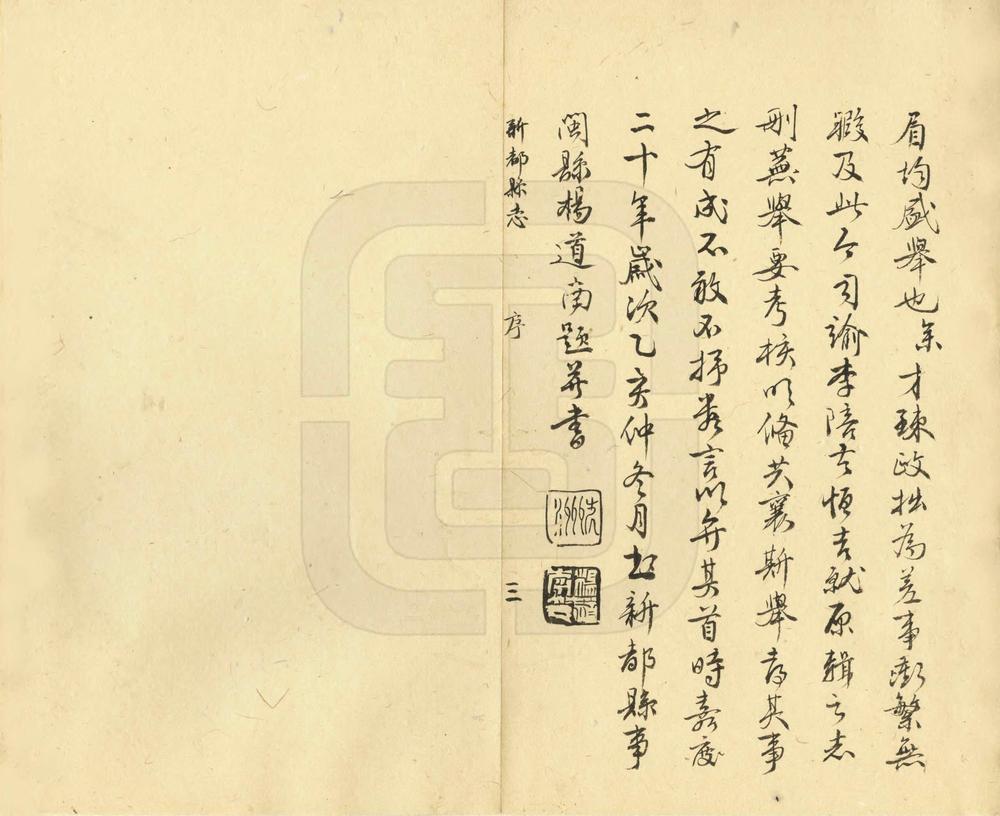 眉均盛舉也余才疎政拙為差事衝繁無
暇及此今司諭李陪吉恒吉就原輯之志
刪蕪舉要考核以備共襄斯舉者其事
之有成不敢不抒卷言以弁其首時嘉慶
二十年歲次乙亥仲冬月知新都縣事
閩縣楊道南題并書
新都縣志
序
三